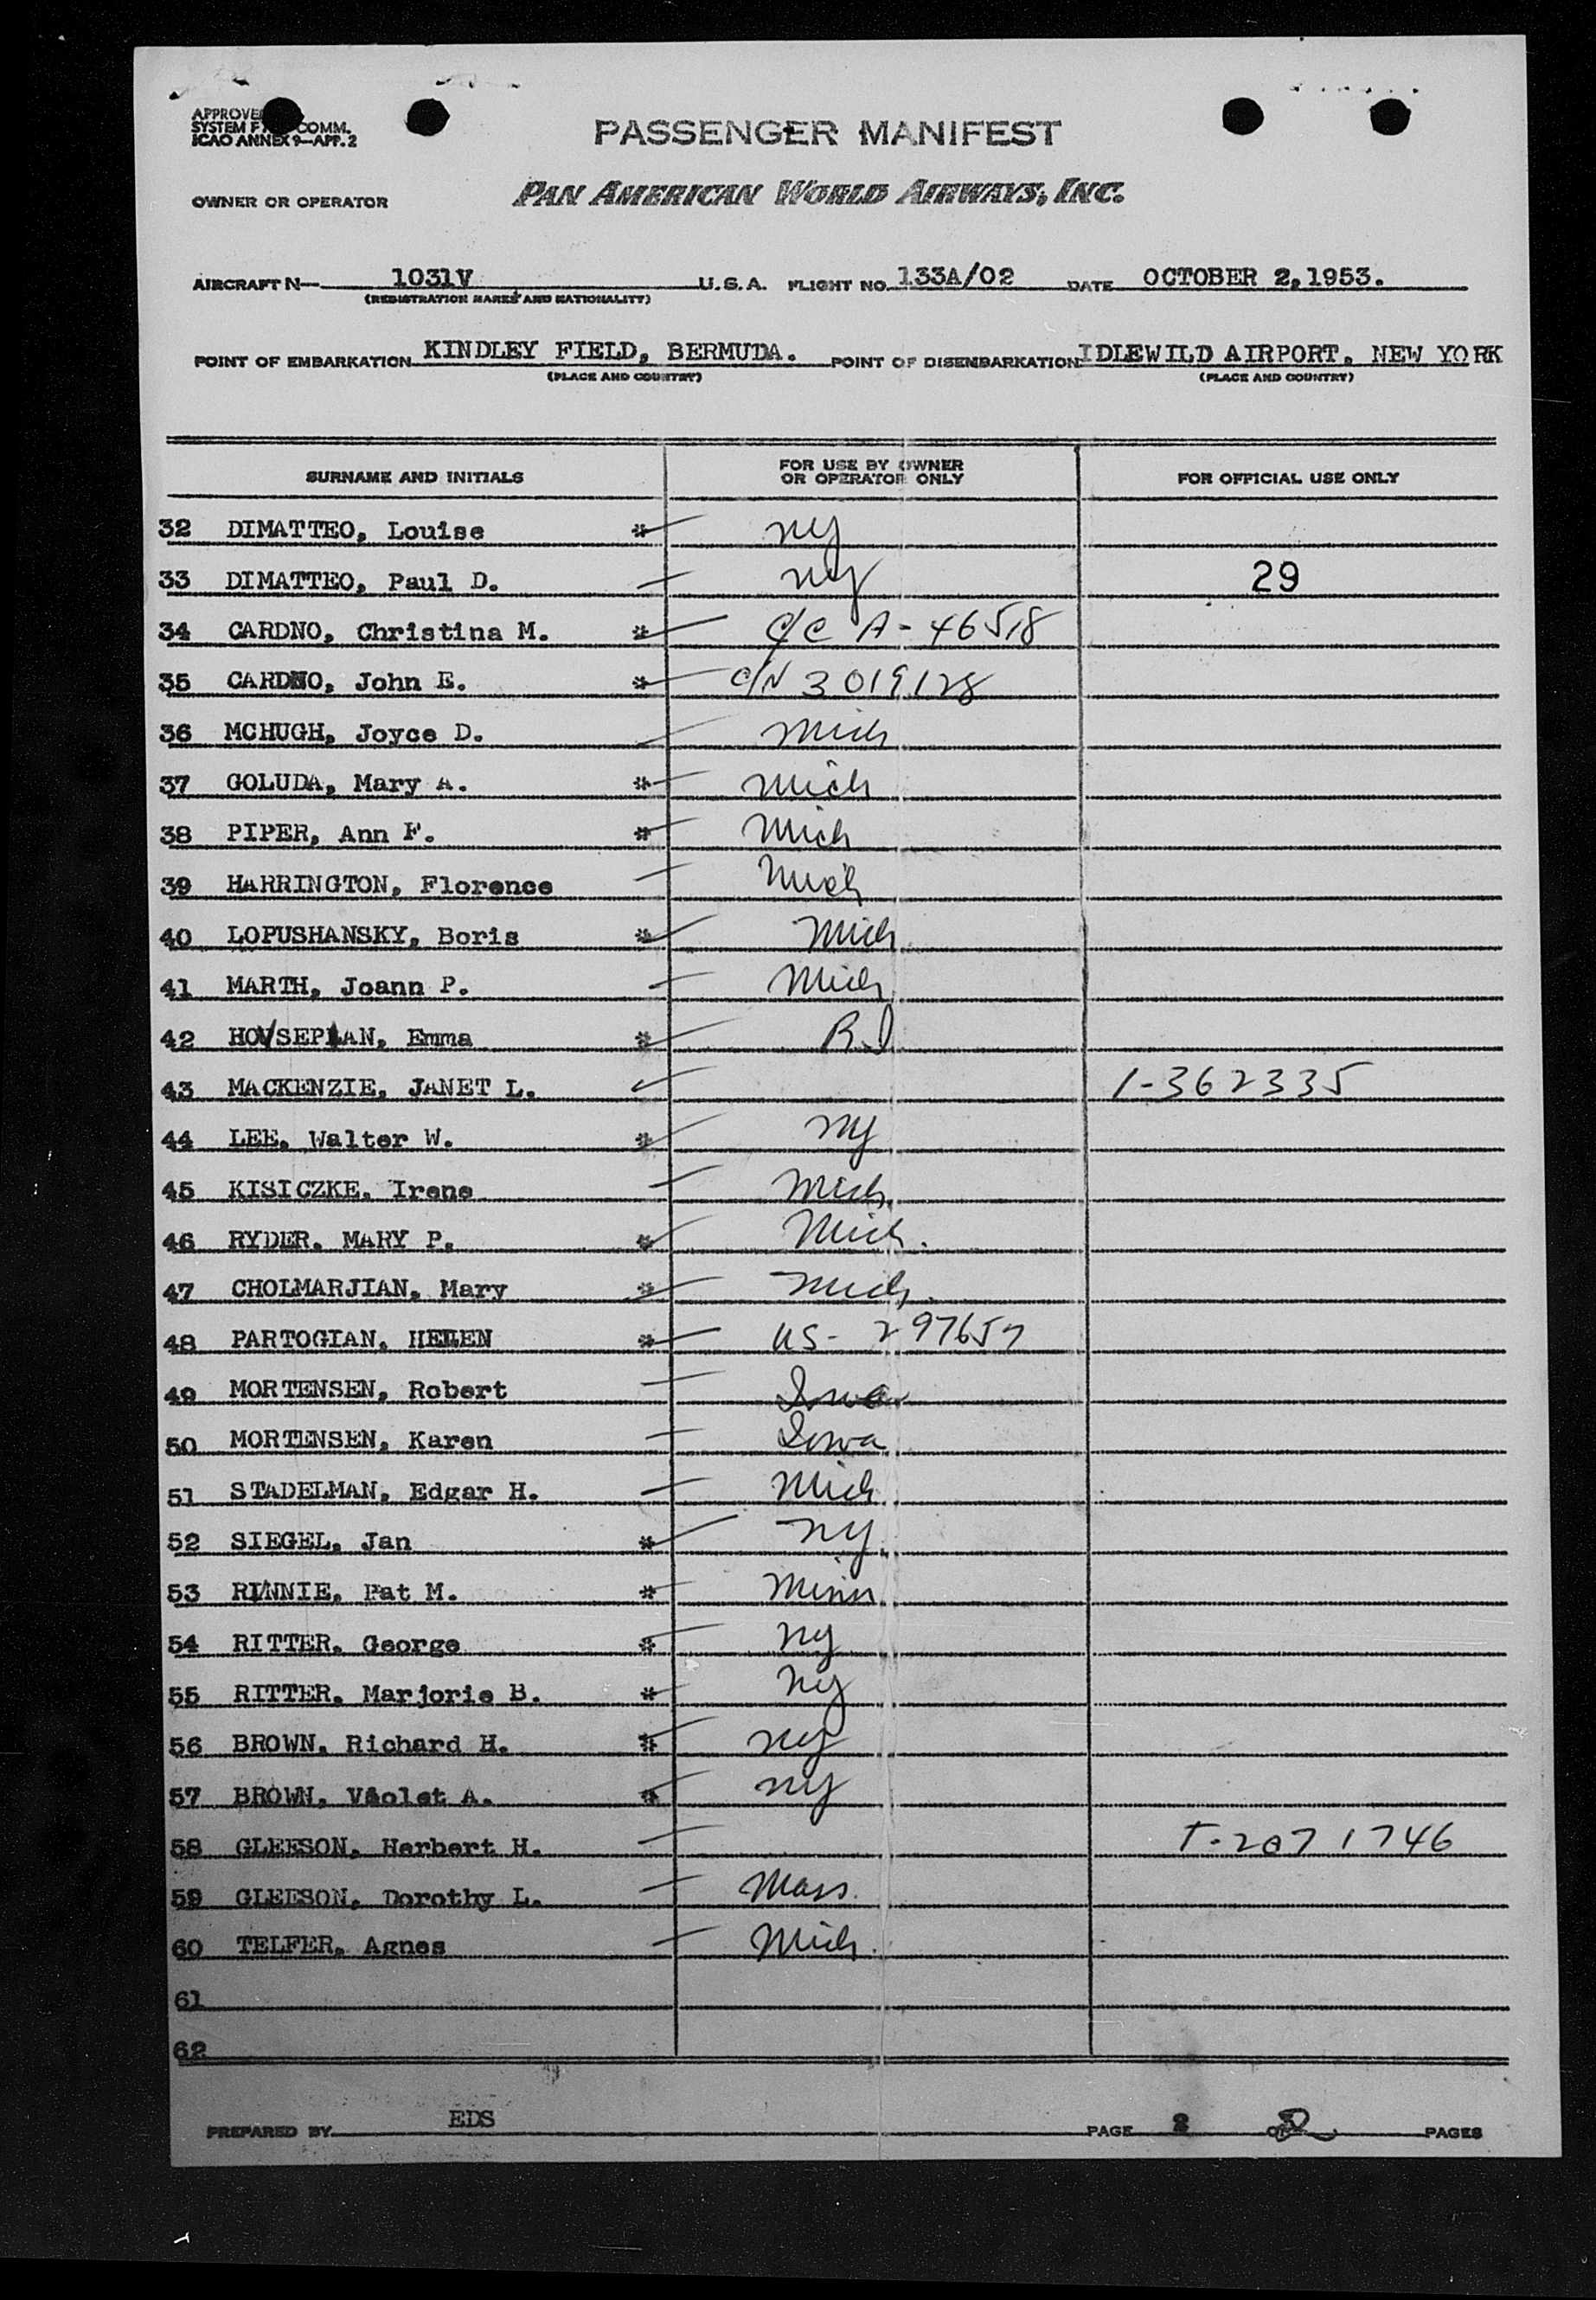 APPROVED
SYSTEM F COMM.
ICAO ANNEX 9—APP. 2
PASSENGER MANIFEST
OWNER OR OPERATOR PAN AMERICAN WORLD AIRWAYS, INC.
AIRCRAFT N— 1031V U.S.A. FLIGHT NO. 133A/02 DATE OCTOBER 2,1953.
(REGISTRATION MARKS AND NATIONALITY)
POINT OF EMBARKATION KINDLEY FIELD, BERMUDA. POINT OF DISEMBARKATION IDLEWILD AIRPORT, NEW YORK
(PLACE AND COUNTRY) (PLACE AND COUNTRY)
SURNAME AND INITIALS FOR USE BY OWNER OR OPERATOR ONLY FOR OFFICIAL USE ONLY
32 DIMATTEO, Louise * NY
33 DIMATTEO, Paul D. NY 29
34 CARDNO, Christina M. * C/C A-46518
35 CARDNO, John E. * C/N 3019128
36 MCHUGH, Joyce D. Mich
37 GOLUDA, Mary A. * Mich
38 PIPER, Ann F. * Mich
39 HARRINGTON, Florence Mich
40 LOPUSHANSKY, Boris * Mich
41 MARTH, Joann P. Mich
42 HOVSEPIAN, Emma * R.I
43 MACKENZIE, JANET L. 1-362335
44 LEE, Walter W. * NY
45 KISICZKE, Irene Mich.
46 RYDER, MARY P. * Mich.
47 CHOLMARJIAN, Mary * Mich.
48 PARTOGIAN, HELEN * US- 297657
49 MORTENSEN, Robert Iowa
50 MORTENSEN, Karen Iowa
51 STADELMAN, Edgar H. Mich
52 SIEGEL, Jan * NY
53 RINNIE, Pat M. * Minn
54 RITTER, George * NY
55 RITTER, Marjorie B. * NY
56 BROWN, Richard H. * NY
57 BROWN, Violet A. * NY
58 GLEESON, Herbert H. T-2071746
59 GLEESON, Dorothy L. Mass.
60 TELFER, Agnes Mich.
61
62
PREPARED BY EDS PAGE 2 OF PAGES